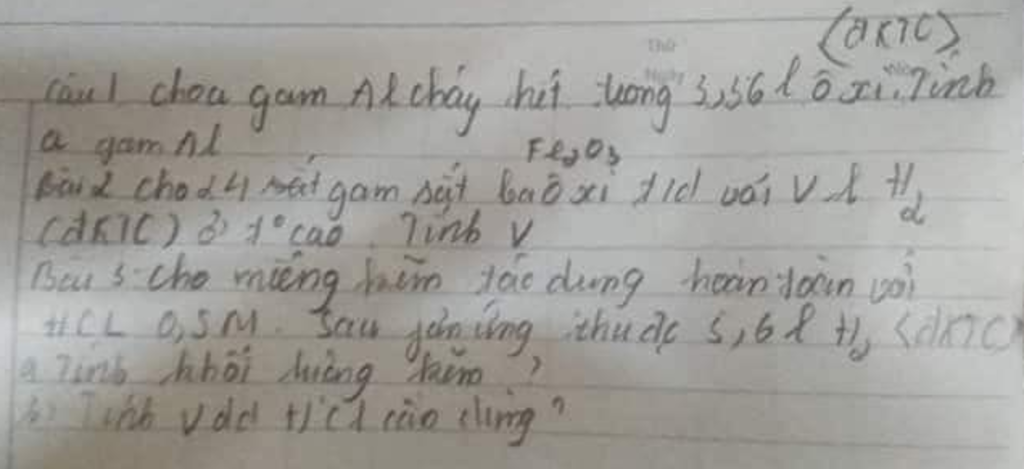 (đKTC)
Câu1 cho a gam Al cháy hết trong 3,36 l ô xi. Tính
a gam Al
Fe2O3
Bài 2 cho 24 gam sắt ba ô xi t/d với V l H2
(đKTC) ở t° cao. Tính V
Bài 3: Cho miếng kẽm tác dụng hoàn toàn với
HCL 0,5M. Sau ứng thu đc 5,6 l H2 (đKTC)
a Tính khối lượng kẽm ?
b) Tính Vdd HCl cần dùng?